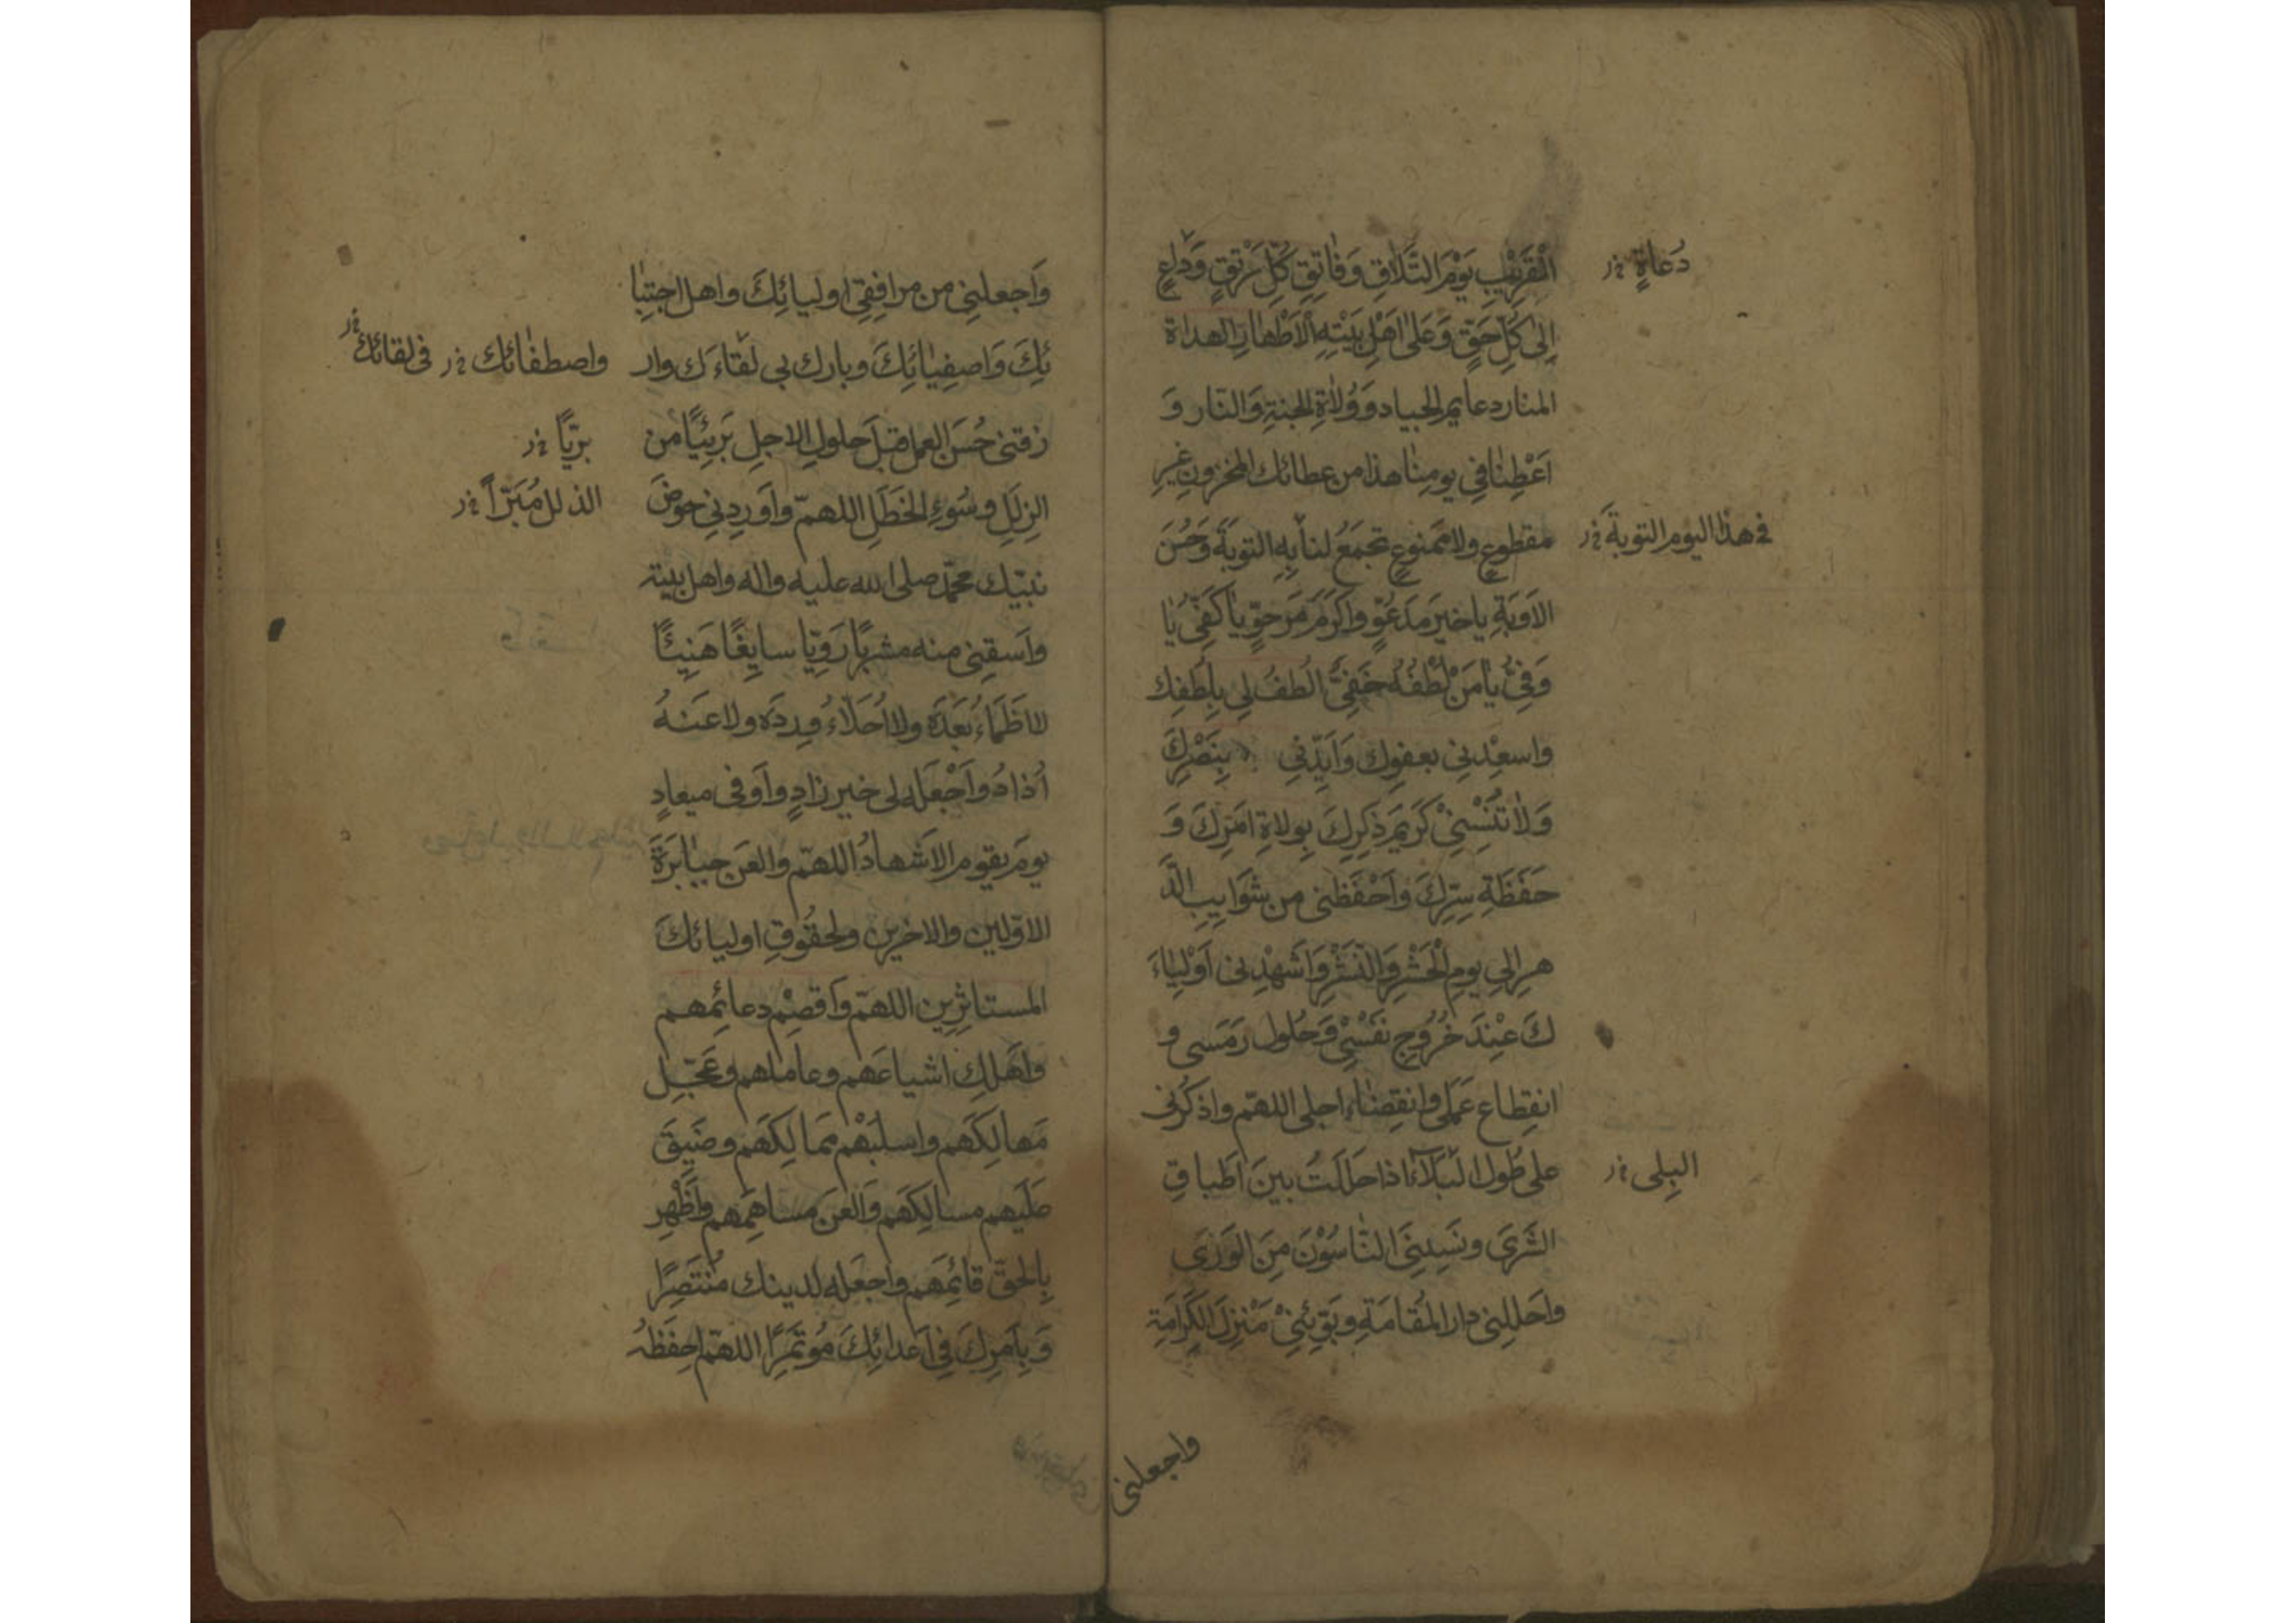 الْقَرِيْبِ يَوْمَ التَّلَاقِ وَفَاتِقِ كُلِّ رَتْقٍ وَدَاعٍ
دُعَاةٍ خ ر
اِلىٰ كُلِّ حَقٍّ وَعَلىٰ اَهْلِ بَيْتِهِ الْاَطْهَارِ الهداة
المنار دعايم الجباد وَوُلٰاةِ الجنةِ وَالنّار وَ
اَعْطِنٰا فِي يومِنٰا هذا من عطائك المخزونِ غيرِ
مقطوعٍ ولا مَمنوعٍ تجمَعُ لنا بِهِ التوبَةَ وَحُسْنَ
في هذا اليوم التوبةَ خ ر
الاَوبَةِ يا خيرَ مَدعُوٍّ واَكرَمَ مَرجوٍّ يا كَفِىُّ يٰا
وَفِىُّ يٰا مَنْ لُطْفُهُ خَفِىٌّ اُلطُفْ لِي بِلُطفِك
واسعِدْنِى بعفوِك وَاَيِّدْنِي بِنَصْرِكَ
وَلٰا تُنْسِنِىْ كَرِيمَ ذِكرِكَ بِولاةِ اَمْرِكَ وَ
حَفَظَةِ سِرِّكَ واَحْفَظنى من شَوَايِبِ الدَّ
هرِ الى يومِ الْحَشْرِ وَالنَّشْرِ وَاَشْهِدْنِى اَوْلِيٰاءَ
كَ عِنْدَ خُرُوجِ نَفْسِىْ وَحُلول رَمَسى و
انقِطاعِ عَمَلى وانقِضٰاءِ اجلى اللهمّ واذكُرنى
على طُول البَلآءِ اذا حَلَلتُ بينَ اَطباقِ
البِلى خ ر
الثَّرىَ ونَسِيَنِىَ النّٰاسُوْنَ مِنَ الوَرىَ
واَحلِلنى دار المُقامَةِ وبَوِّئنِىْ مَنْزِلَ الكَرامَةِ
واجعلنى
وَاَجعلنِى من مرافِقِى اوليائِكَ واهل اجتِبٰا
ئِكَ وَاصفِيٰائِكَ وبارك بى لقاءَك وار
واصطفٰائك خ ر
فى لقائك خ ر
زقنى حُسنَ العمل قبلَ حلولِ الاجلِ بَرِيئًا من
برّيًا خ ر
الزلَلِ وسُوءِ الخَطَلِ اللهمّ واَورِدنِي حوضَ
الذلل مُبَرّاً خ ر
نبيّك محمّد صلى الله عليه واله واهل بيته
واَسقِنِى منه مشربًا رَوِيّا سايِغًا هَنِيئًا
لا اَظمَاءُ بَعْدَهُ ولا اُحَلّاءُ وِردَهُ ولا عَنهُ
اُذادُ واَجْعَله لى خير زادٍ واَوفى ميعادٍ
يومَ يقوم الاَشهادُ اللهمّ والعَن جبٰابَرَةَ
الاوّلين والاخرين ولحقُوقِ اوليائكَ
المستاثِرِين اللهمّ وَاقصِمْ دعائِمهم
واَهلِك اشياعَهم وعاملهم وعَجِّل
مَهالِكَهم واسلُبْهم مَمالِكَهم وضَيِّق
عليهم مسالِكَهم وَالعَن مساهِمَهم واَظْهِر
بِالحقِّ قائِمَهم واجعَله لدينك مُنتَصِرًا
وَبِاَمرِكَ فِى اَعدائِكَ مُوتَمِرًا اللهمّ احفَظهُ